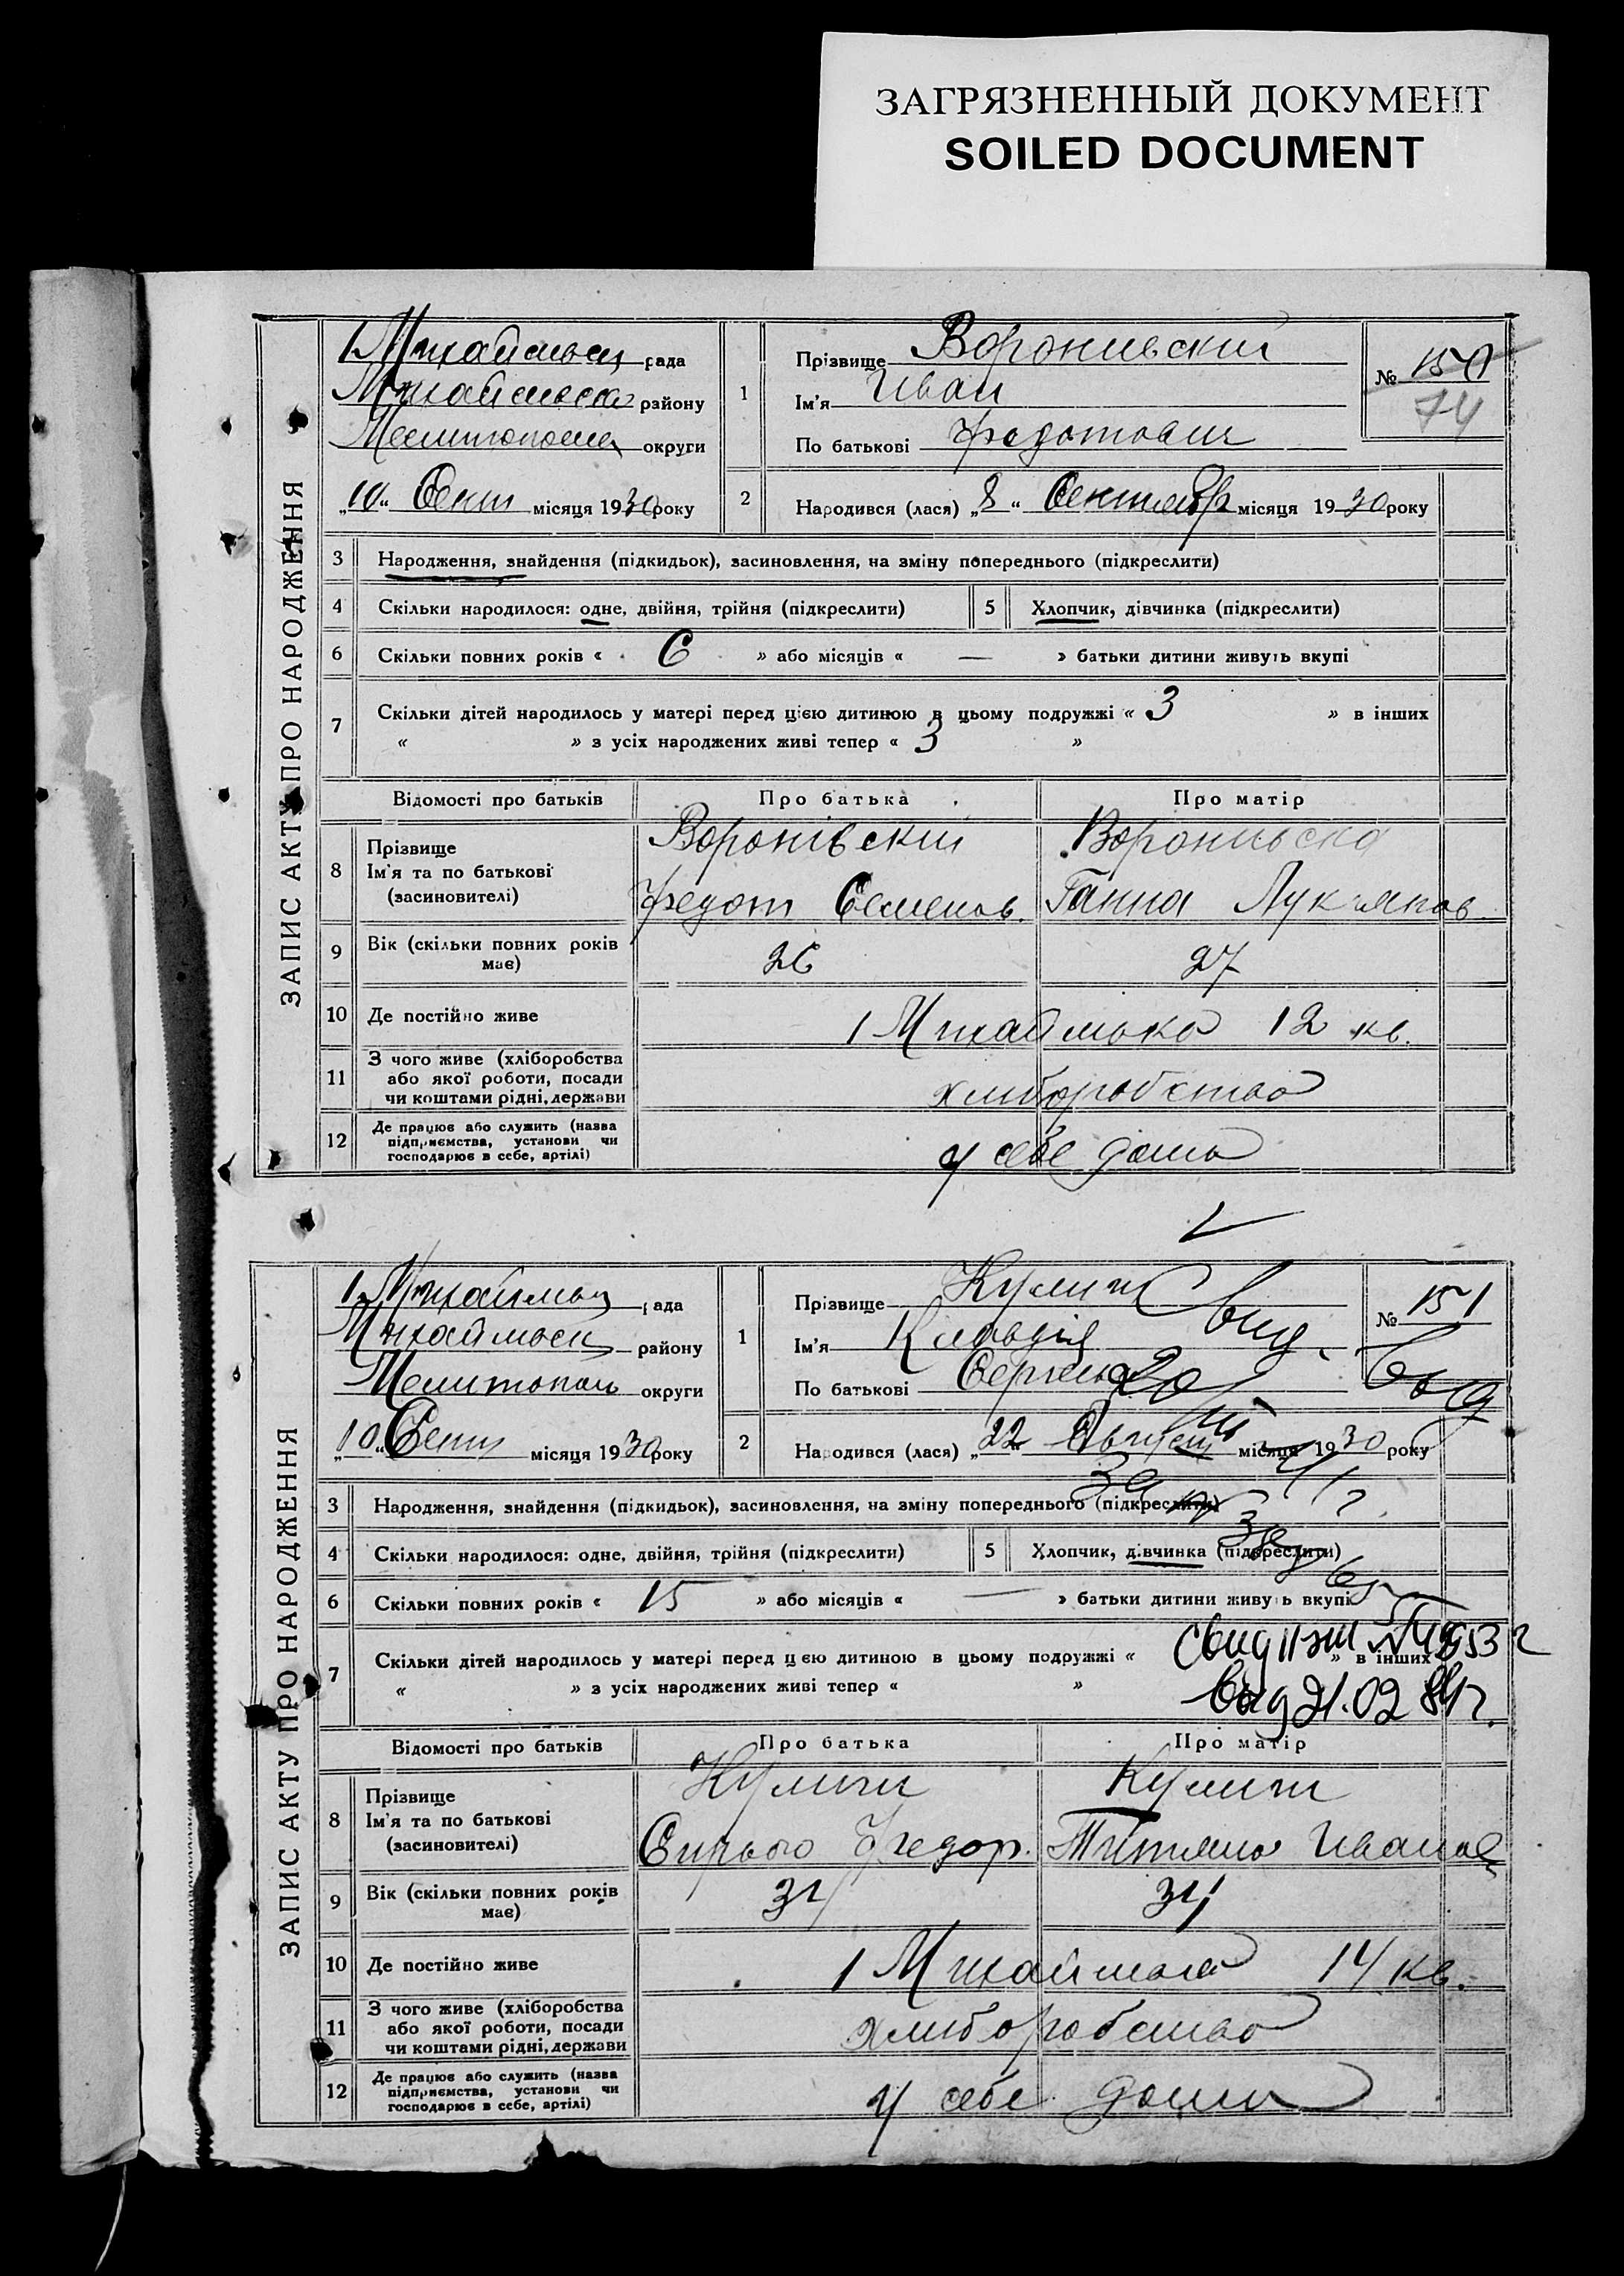 ЗАГРЯЗНЕННЫЙ ДОКУМЕНТ
SOILED DOCUMENT
ЗАПИС АКТУ ПРО НАРОДЖЕННЯ
рада
району
округи
„10“ Сент місяця 1930 року
1 Прізвище Воронивский
Ім'я Иван
По батькові Федотович
№ 150
74
2 Народився (лася) „8“ Сентябр місяця 1930 року
3 Народження, знайдення (підкидьок), засиновлення, на зміну попереднього (підкреслити)
4 Скільки народилося: одне, двійня, трійня (підкреслити) 5 Хлопчик, дівчинка (підкреслити)
6 Скільки повних років « 6 » або місяців « — » батьки дитини живуть вкупі
7 Скільки дітей народилось у матері перед цією дитиною в цьому подружжі « 3 » в інших
« » з усіх народжених живі тепер « 3 »
Відомості про батьків Про батька Про матір
8 Прізвище Воронівский Воронивска
Ім'я та по батькові Федот Семенов. Ганна Лукянов
(засиновителі)
9 Вік (скільки повних років має) 26 27
10 Де постійно живе 1 Михайлівка 12 кв.
11 З чого живе (хліборобства або якої роботи, посади чи коштами рідні, держави хлиборобство
12 Де працює або служить (назва підприємства, установи чи господарює в себе, артілі) у себе дома
ЗАПИС АКТУ ПРО НАРОДЖЕННЯ
рада
району
Мелитополь округи
„10“ Сент місяця 1930 року
1 Прізвище Кулиш
Ім'я Клавдія
По батькові
№ 151
2 Народився (лася) „22“ Август місяця 1930 року
3 Народження, знайдення (підкидьок), засиновлення, на зміну попереднього (підкреслити)
4 Скільки народилося: одне, двійня, трійня (підкреслити) 5 Хлопчик, дівчинка (підкреслити)
6 Скільки повних років « 15 » або місяців « — » батьки дитини живуть вкупі
7 Скільки дітей народилось у матері перед цією дитиною в цьому подружжі « » в інших
« » з усіх народжених живі тепер « »
Выд 21.02 84г.
Відомості про батьків Про батька Про матір
8 Прізвище Кулиш Кулиш
Ім'я та по батькові Федор. Титяна Иванов
(засиновителі)
9 Вік (скільки повних років має) 34 34
10 Де постійно живе 1 Михайлівка 14 кв.
11 З чого живе (хліборобства або якої роботи, посади чи коштами рідні, держави хлиборобство
12 Де працює або служить (назва підприємства, установи чи господарює в себе, артілі) у себе дома